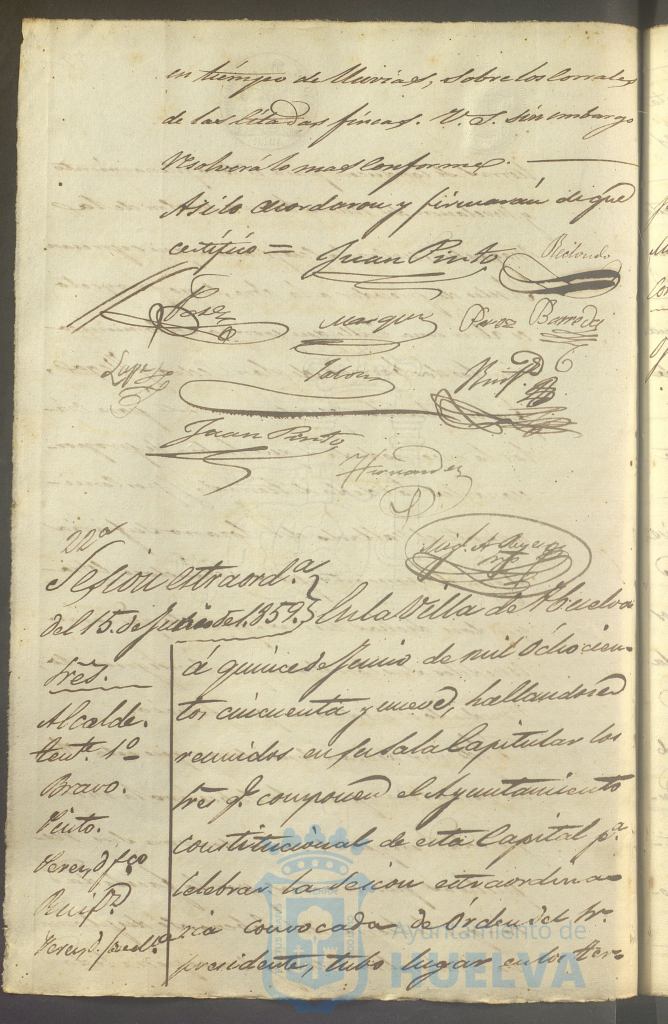 en tiempo de lluvias, sobre los Corrales
de las citadas fincas. V. S. sin embargo
resolverá lo mas conforme.
Asi lo acordaron y firmarán de que
certifico = Juan Pinto Redondo
Perez Marquez Perez Barreda
Lopez Jalon Ruiz
Juan Pinto
Hernandez
Mig.l A. Reyes
22ª
Sesion extraord.ª
del 15. de Junio de 1.859.} En la Villa de Huelva
á quince de Junio de mil ochocien-
tos cincuenta y nueve, hallandose
reunidos en su sala Capitular los
Sres q.e componen el Ayuntamiento
constitucional de esta Capital p.ª
celebrar la sesion extraordina-
ria convocada de órden del Sr.
presidente, tubo lugar en los ter-
Sres.
Alcalde.
Tente. 1º
Bravo.
Pinto.
Perez, D. Fco
Ruif.z
Perez, D.
Ayuntamiento de
HUELVA